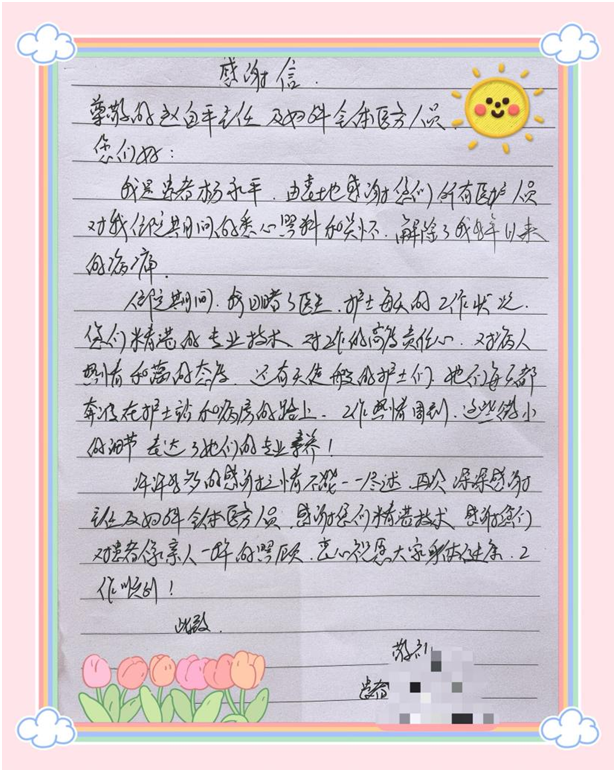 感谢信.
尊敬的赵自平主任及妇科全体医务人员,
您们好:
我是患者杨永平.由衷地感谢您们所有医护人员
对我住院其间的悉心照料和关怀.解除了我多年以来
的病痛.
住院其间.我目睹了医生.护士每天的工作状况.
您们精湛的专业技术 对工作的高度责任心.对病人
热情和蔼的态度 还有天使般的护士们.她们每天都
奔波在护士站和病房的路上.工作热情周到.这些微小
的细节 表达了她们的专业素养!
许许多多的感谢之情不能一一尽述.再次深深感谢
主任及妇科全体医务人员.感谢您们精湛技术 感谢您们
对患者像亲人一样的照顾.衷心祝愿大家身体健康.工
作顺利!
此致.
敬礼
患者